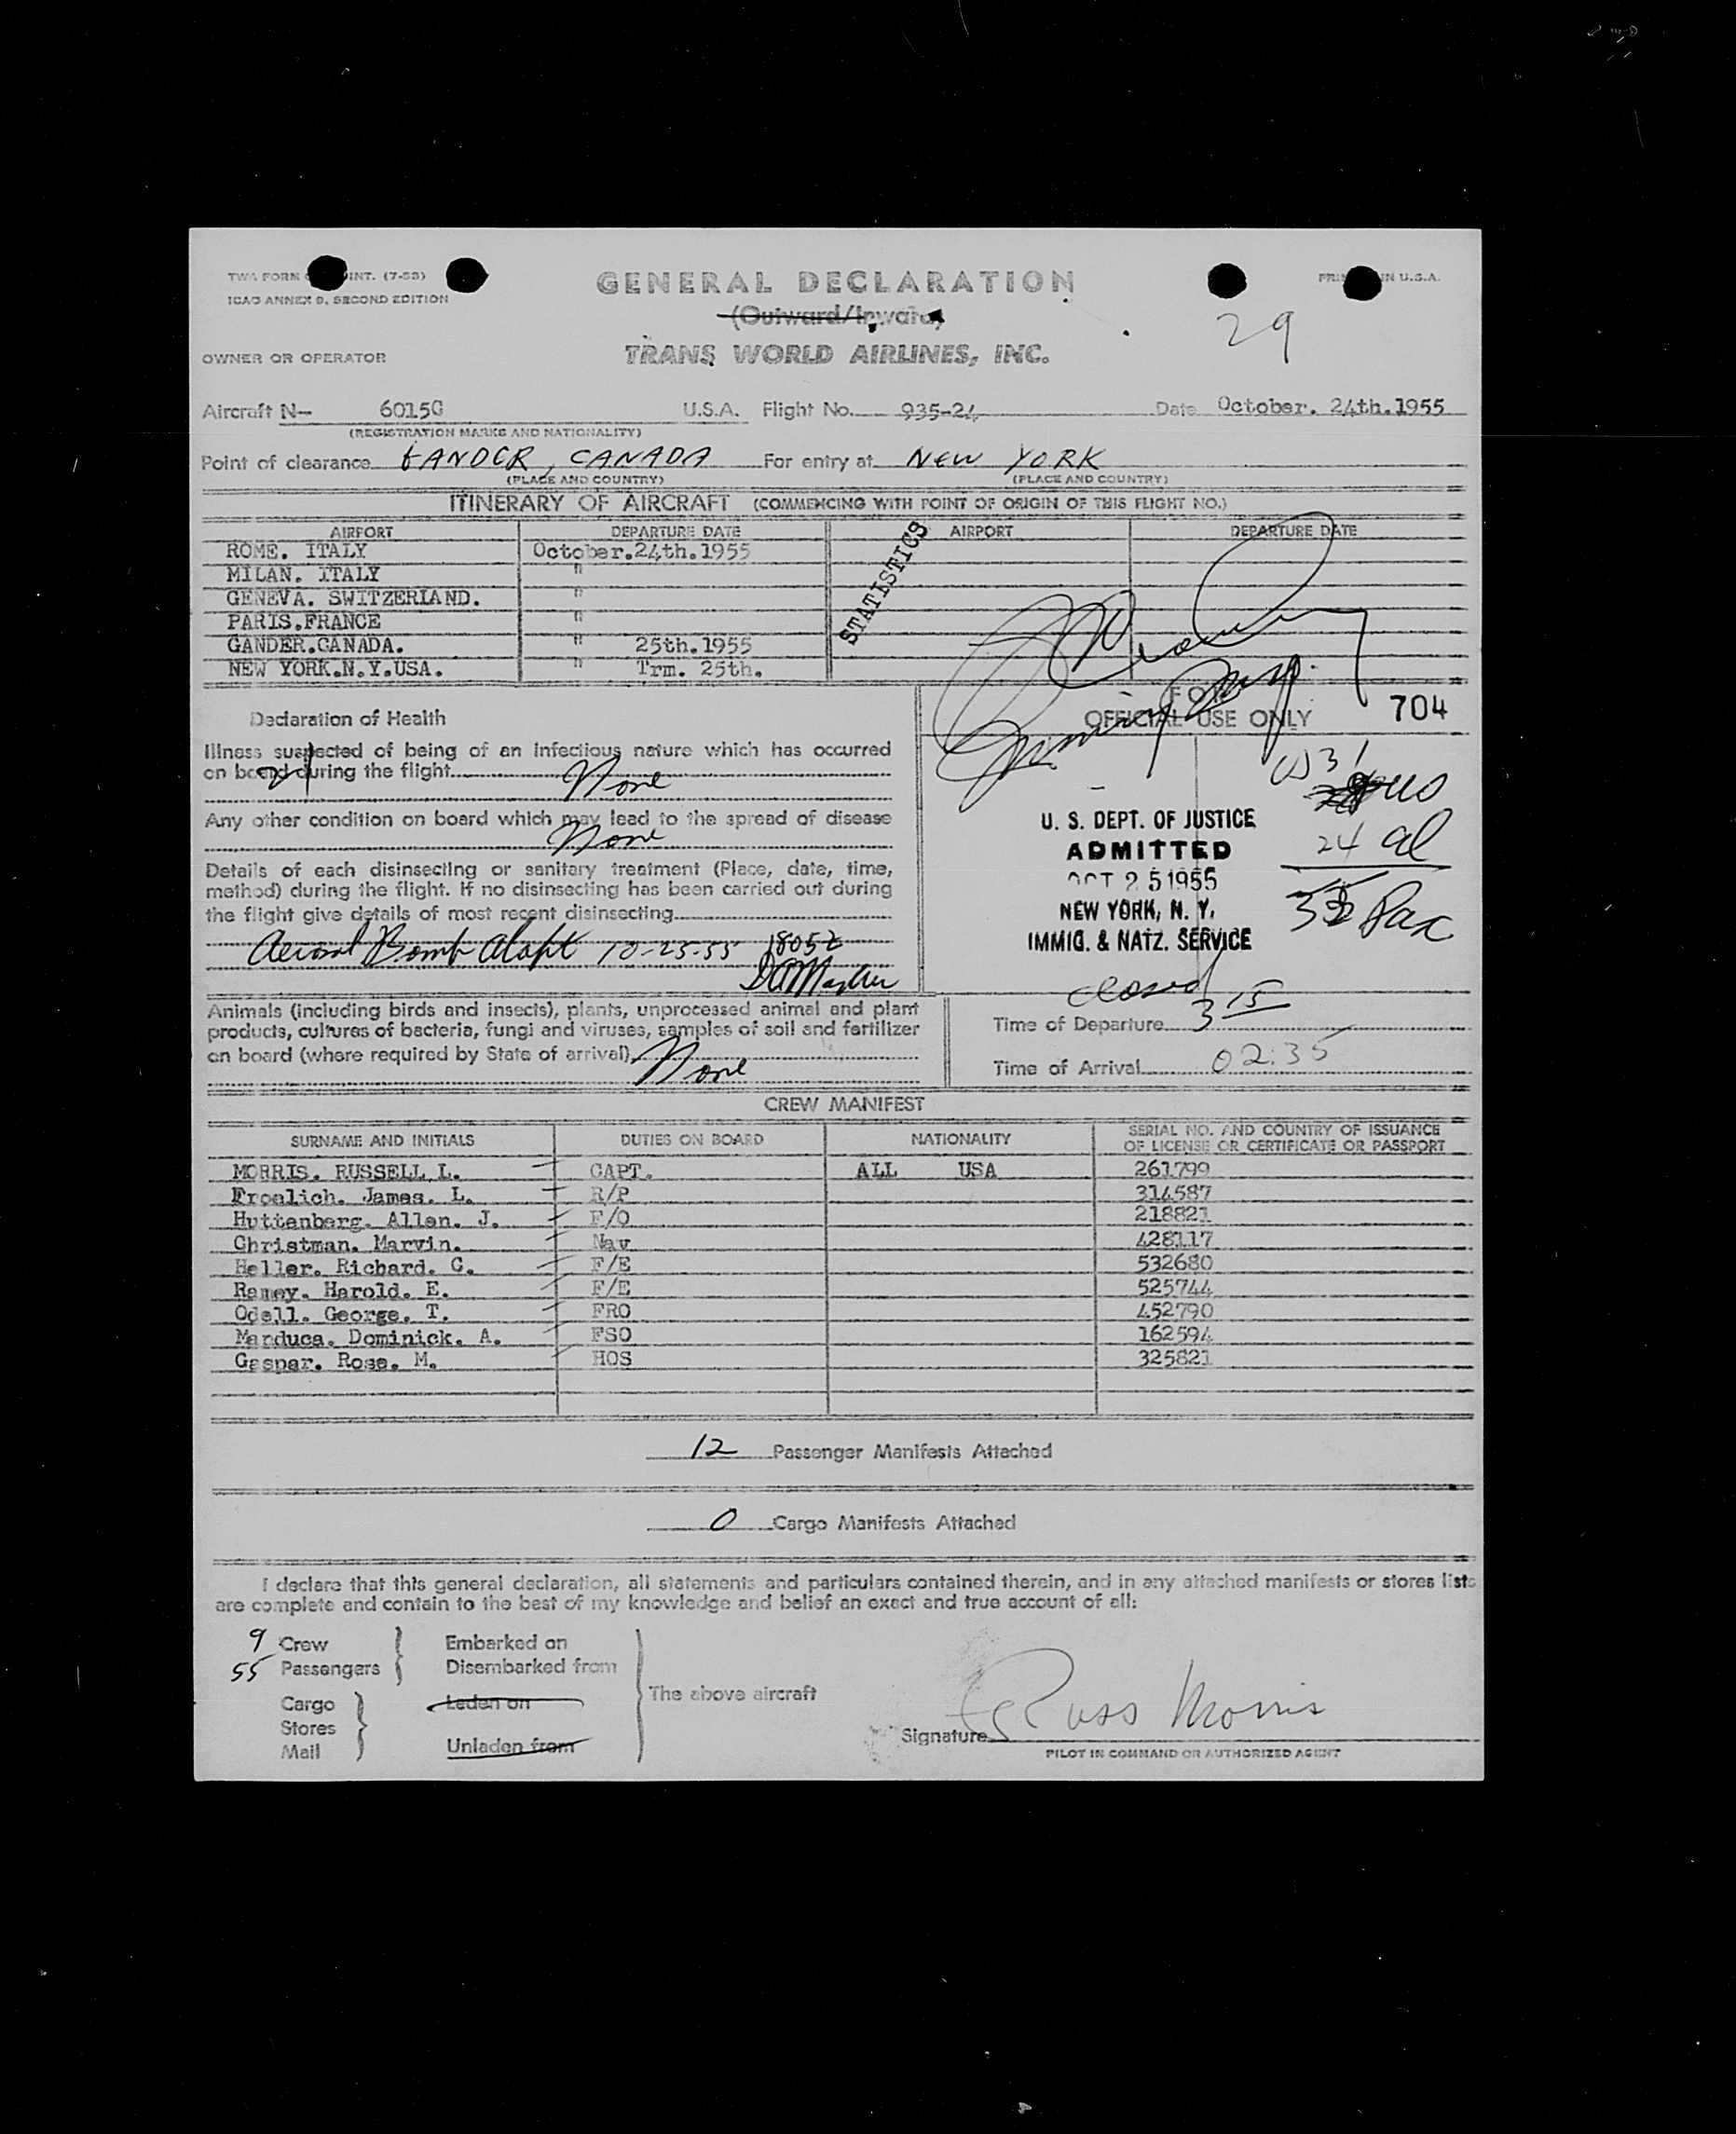 TWA FORM INT. (7-53)
ICAO ANNEX 9, SECOND EDITION
GENERAL DECLARATION
PRIN IN U.S.A.
(Outward/Inward)
29
OWNER OR OPERATOR
TRANS WORLD AIRLINES, INC.
Aircraft N- 6015C U.S.A. Flight No. 935-24 Date October. 24th.1955
(REGISTRATION MARKS AND NATIONALITY)
Point of clearance GANDER, CANADA For entry at NEW YORK
(PLACE AND COUNTRY) (PLACE AND COUNTRY)
ITINERARY OF AIRCRAFT (COMMENCING WITH POINT OF ORIGIN OF THIS FLIGHT NO.)
AIRPORT DEPARTURE DATE AIRPORT DEPARTURE DATE
ROME. ITALY October.24th.1955
MILAN. ITALY "
GENEVA. SWITZERLAND. "
PARIS.FRANCE "
GANDER.CANADA. " 25th.1955
NEW YORK.N.Y.USA. " Trm. 25th.
STATISTICS
Declaration of Health
FOR
OFFICIAL USE ONLY 704
Illness suspected of being of an infectious nature which has occurred
on board during the flight None
Any other condition on board which may lead to the spread of disease
None
Details of each disinsecting or sanitary treatment (Place, date, time,
method) during the flight. If no disinsecting has been carried out during
the flight give details of most recent disinsecting
Aerosol Bomb 10-25-55 1805Z
31
24 al
55 Pax
U. S. DEPT. OF JUSTICE
ADMITTED
OCT 25 1955
NEW YORK, N. Y.
IMMIG. & NATZ. SERVICE
closed 3 15
Animals (including birds and insects), plants, unprocessed animal and plant
products, cultures of bacteria, fungi and viruses, samples of soil and fertilizer
on board (where required by State of arrival) None
Time of Departure
Time of Arrival 02:35
CREW MANIFEST
SURNAME AND INITIALS DUTIES ON BOARD NATIONALITY SERIAL NO. AND COUNTRY OF ISSUANCE
OF LICENSE OR CERTIFICATE OR PASSPORT
MORRIS. RUSSELL L. CAPT. ALL USA 261799
Froelich. James. L. R/P 314587
Huttenberg. Allen. J. F/O 218821
Christman. Marvin. Nav 428117
Heller. Richard. C. F/E 532680
Raney. Harold. E. F/E 525744
Odell. George. T. FRO 452790
Manduca. Dominick. A. FSO 162594
Gaspar. Rose. M. HOS 325821
12 Passenger Manifests Attached
0 Cargo Manifests Attached
I declare that this general declaration, all statements and particulars contained therein, and in any attached manifests or stores lists
are complete and contain to the best of my knowledge and belief an exact and true account of all:
9 Crew Embarked on
55 Passengers Disembarked from
The above aircraft
Cargo Laden on
Stores
Mail Unladen from
Signature Russ Morris
PILOT IN COMMAND OR AUTHORIZED AGENT